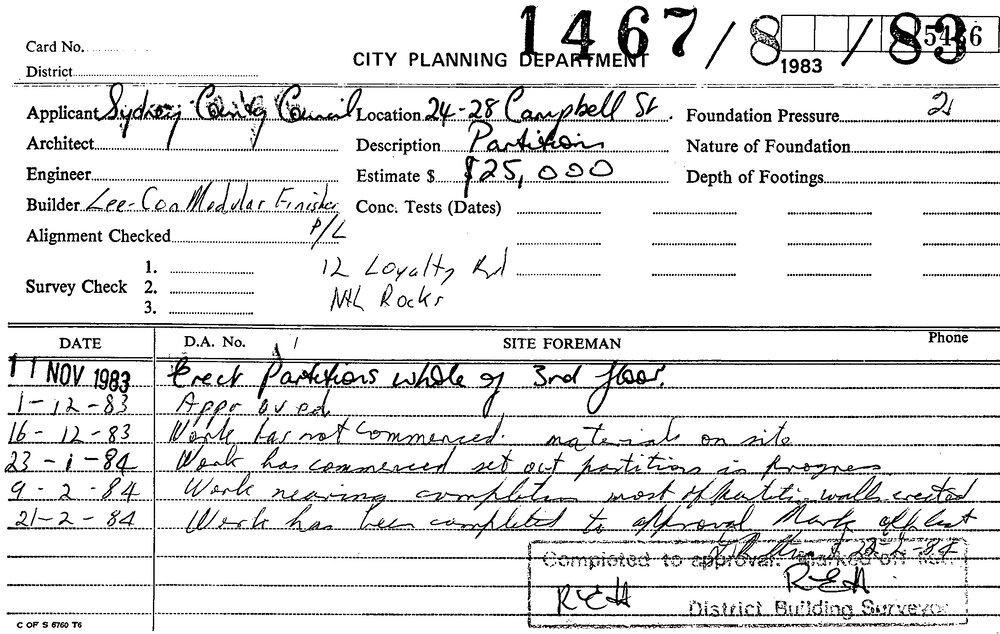 1467/8 /83
5466
Card No.
CITY PLANNING DEPARTMENT
1983
District
Applicant Sydney County Council Location 24-28 Campbell St. Foundation Pressure 21
Architect Description Partitions Nature of Foundation
Engineer Estimate $ $25,000 Depth of Footings
Builder Lee-Con Modular Finisher P/L Conc. Tests (Dates)
Alignment Checked
12 Loyalty Rd
Nth Rocks
Survey Check 1.
2.
3.
DATE D.A. No. SITE FOREMAN Phone
11 NOV 1983 Erect Partitions whole of 3rd floor.
1-12-83 Approved
16-12-83 Work has not commenced. materials on site
23-1-84 Work has commenced set out partitions in progress
9-2-84 Work nearing completion most of partiti walls erected
21-2-84 Work has been completed to approval Mark off list
22-2-84
Completed to approval. Marked off list.
REH REH
District Building Surveyor
C OF S 6760 T6